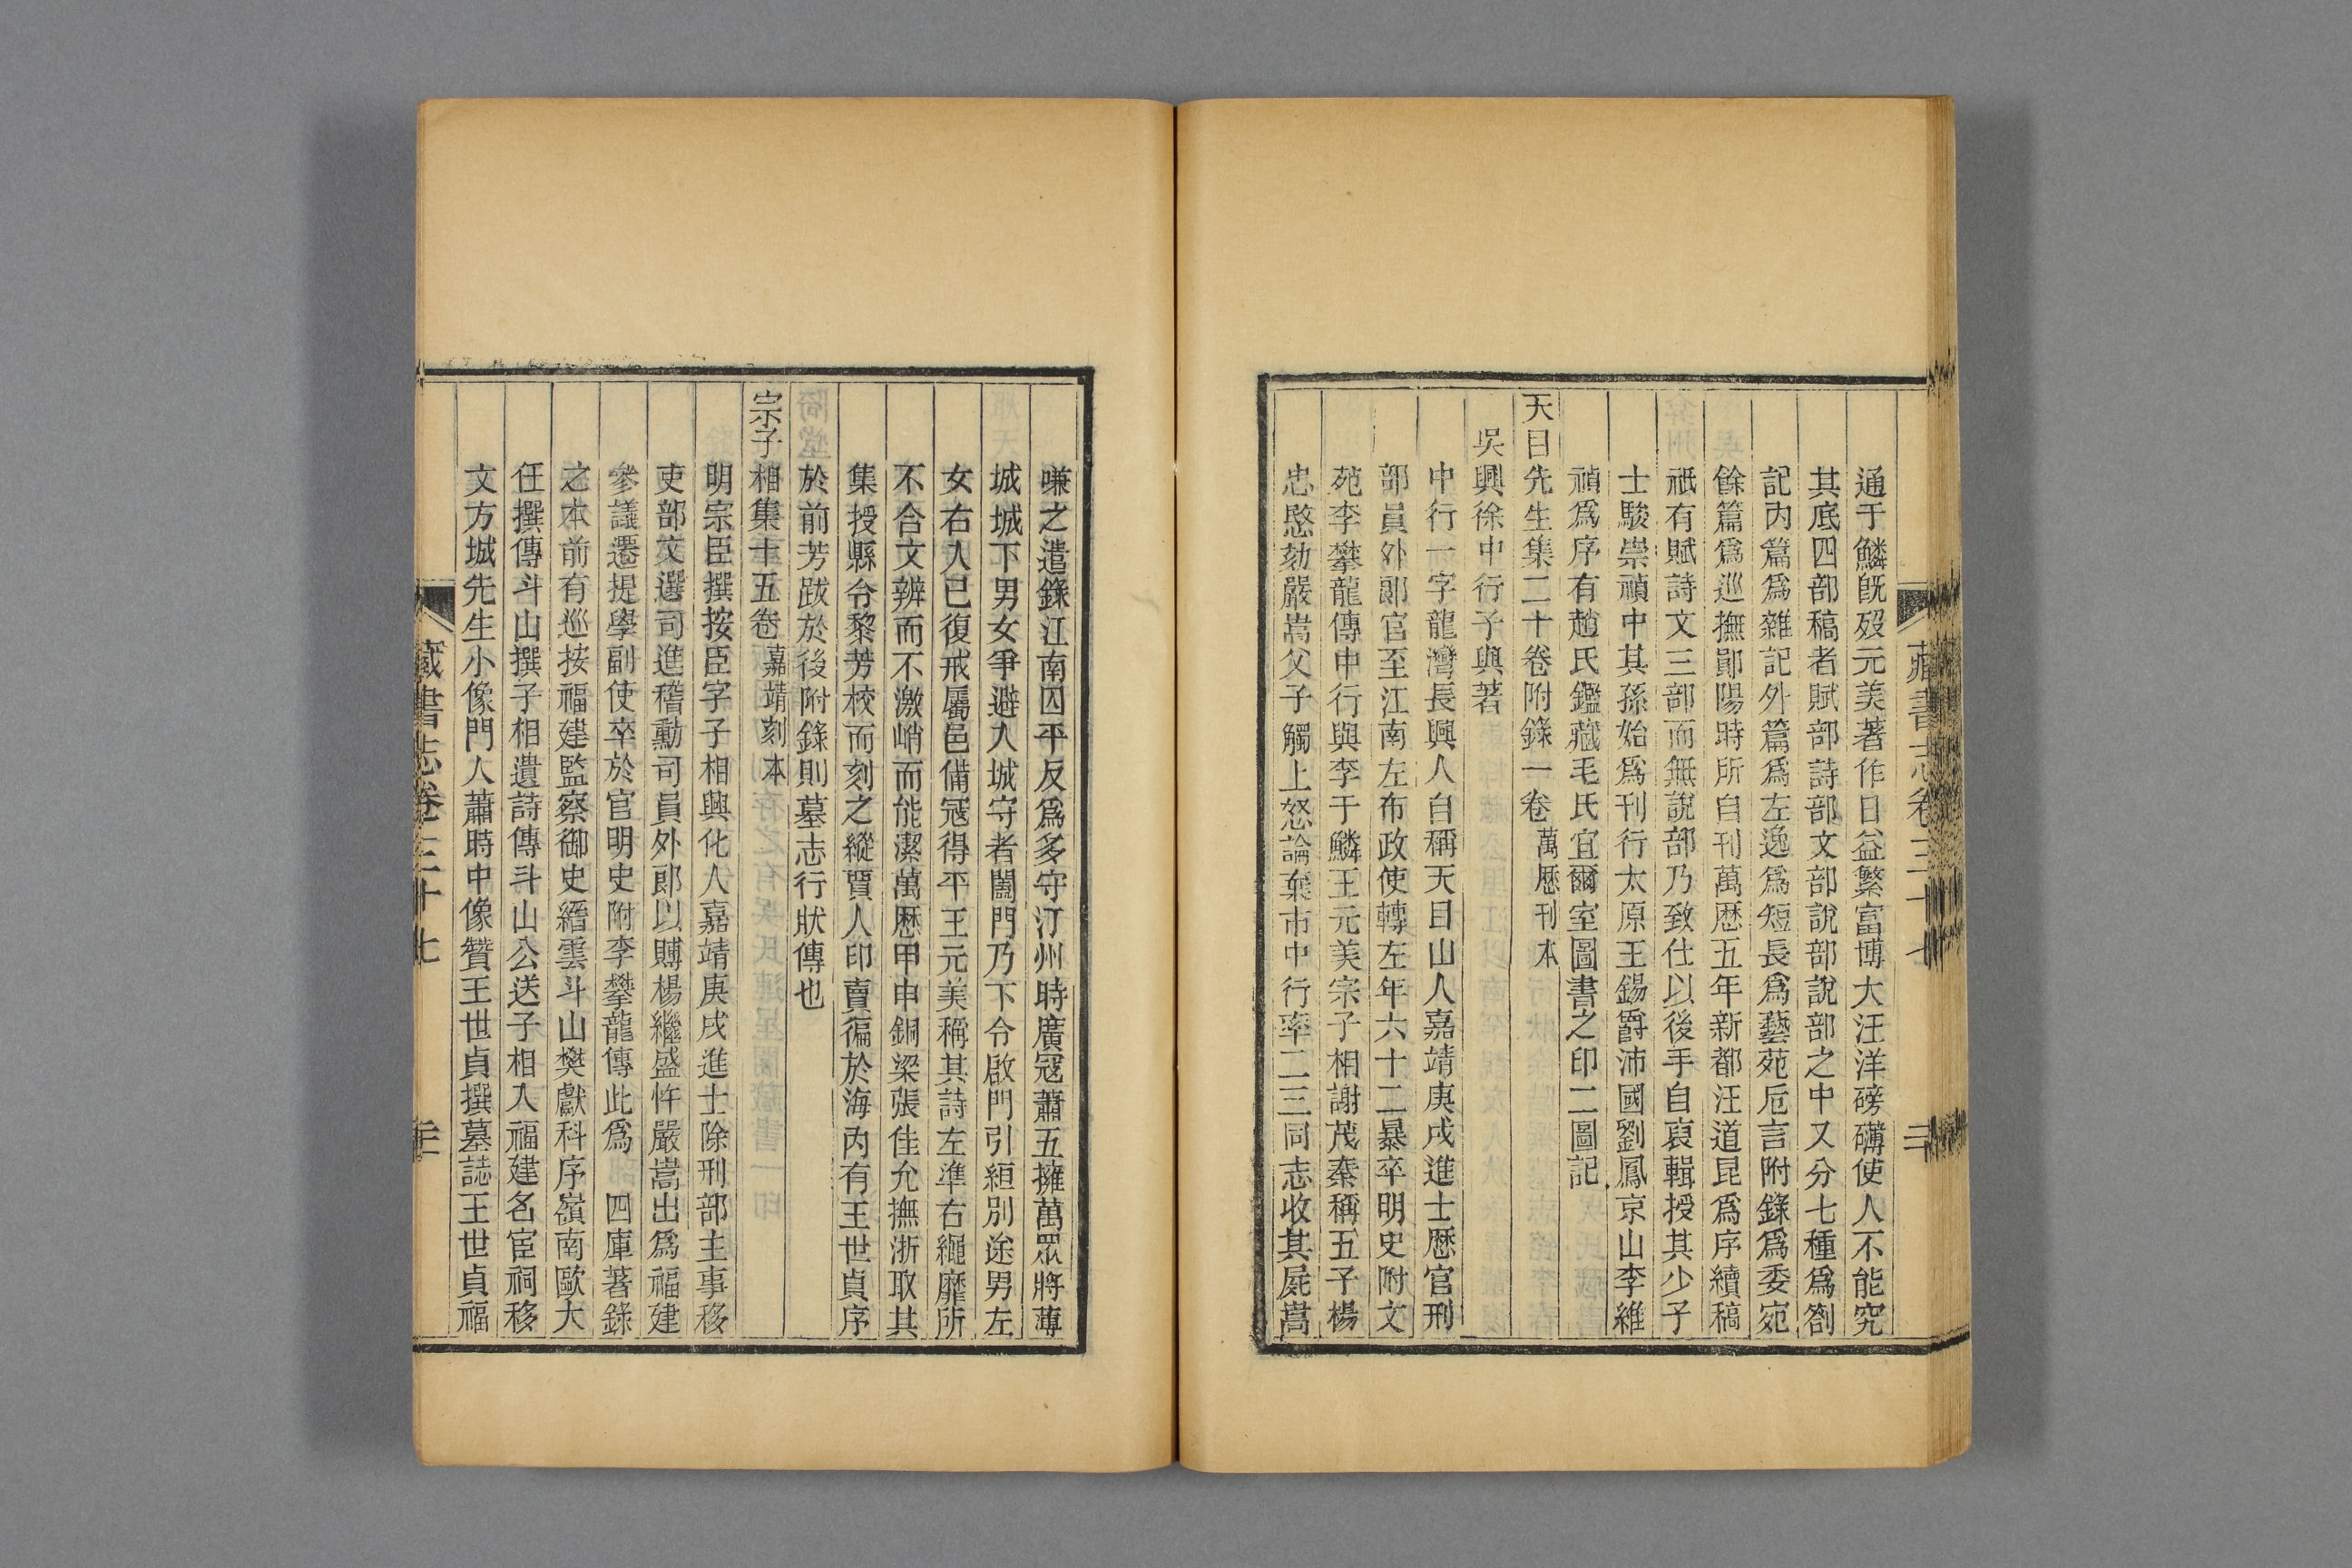 通于鱗旣歿元美著作日益繁富博大汪洋磅礴使人不能究
其底四部稿者賦部詩部文部說部說部之中又分七種爲劄
記內篇爲雜記外篇爲左逸爲短長爲藝苑卮言附錄爲委宛
餘篇爲巡撫鄖陽時所自刊萬歷五年新都汪道昆爲序續稿
祇有賦詩文三部而無說部乃致仕以後手自裒輯授其少子
士駿崇禎中其孫始爲刊行太原王錫爵沛國劉鳳京山李維
禎爲序有趙氏鑑藏毛氏宜爾室圖書之印二圖記
天目先生集二十卷附錄一卷 萬歷刊本
吳興徐中行子與著
中行一字龍灣長興人自稱天目山人嘉靖庚戌進士歷官刑
部員外郞官至江南左布政使轉左年六十二暴卒明史附文
苑李攀龍傳中行與李于鱗王元美宗子相謝茂秦稱五子楊
忠愍劾嚴嵩父子觸上怒論棄市中行率二三同志收其屍嵩
嗛之遣錄江南囚平反爲多守汀州時廣寇蕭五擁萬眾將薄
城城下男女爭避入城守者闔門乃下令啟門引絙別途男左
女右人已復戒屬邑備寇得平王元美稱其詩左準右繩靡所
不合文辨而不激峭而能潔萬歷甲申銅梁張佳允撫浙取其
集授縣令黎芳校而刻之縱賈人印賣徧於海內有王世貞序
於前芳跋於後附錄則墓志行狀傳也
宗子相集十五卷 嘉靖刻本
明宗臣撰按臣字子相興化人嘉靖庚戌進士除刑部主事移
吏部文選司進稽勳司員外郎以賻楊繼盛忤嚴嵩出爲福建
參議遷提學副使卒於官明史附李攀龍傳此爲 四庫著錄
之本前有巡按福建監察御史縉雲斗山樊獻科序嶺南歐大
任撰傳斗山撰子相遺詩傳斗山公送子相入福建名宦祠移
文方城先生小像門人蕭時中像贊王世貞撰墓誌王世貞福
藏書志卷三十七